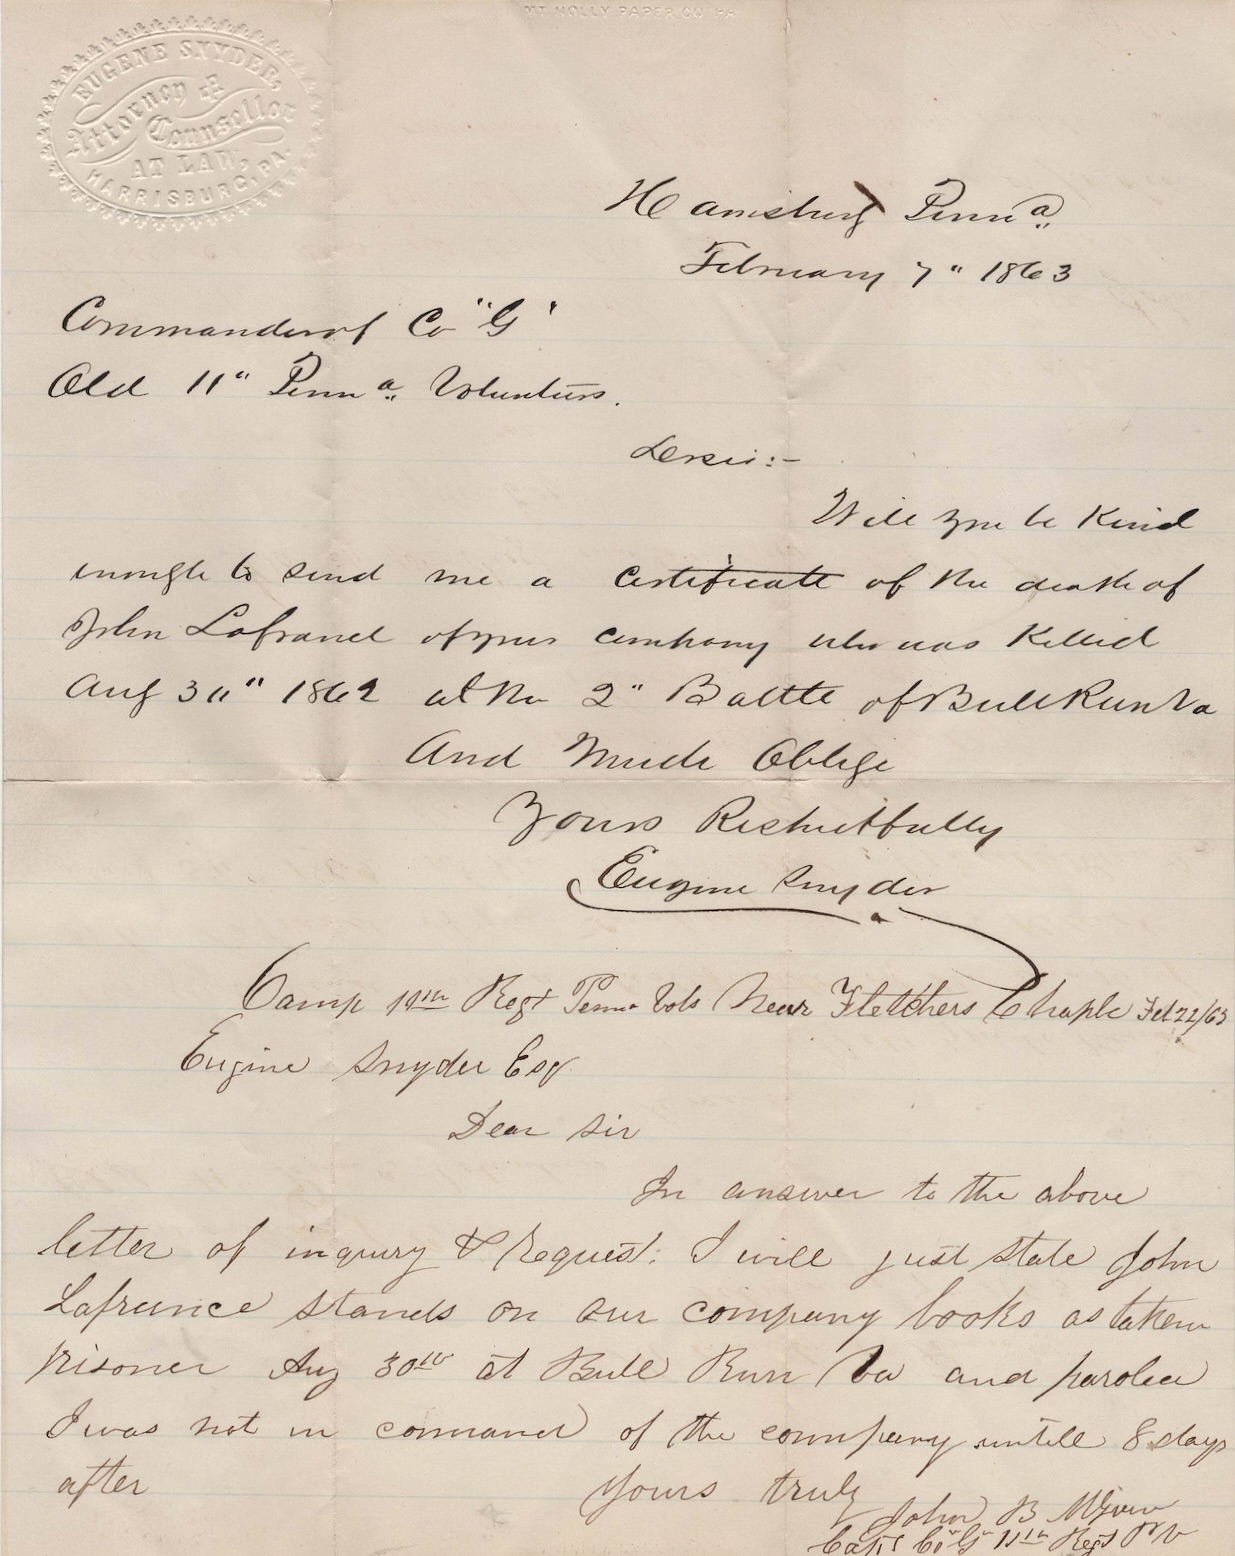 MT HOLLY PAPER CO PA
EUGENE SNYDER,
Attorney &
Counsellor
AT LAW,
HARRISBURG, PA.
Harrisburg Penn a.
February 7" 1863
Commander of Co "G"
Old 11" Penn a. Volunteers.
Dr sir:-
Will you be kind
enough to send me a certificate of the death of
John Lafrance of your company who was killed
Aug 30" 1862 at the 2" Battle of Bull Run Va
And Much Oblige
Yours Respectfully
Eugene Snyder
Camp 11th Regt Penna Vols Near Fletchers Chaple Feb 22/63
Eugine Snyder Esq
Dear Sir
In answer to the above
letter of inqury & request. I will just state John
Lafrance stands on our company books as taken
prisoner Aug 30th at Bull Run Va and paroled
I was not in command of the company untill 8 days
after
Yours truly
John B
Capt Co "G" 11th Regt P V